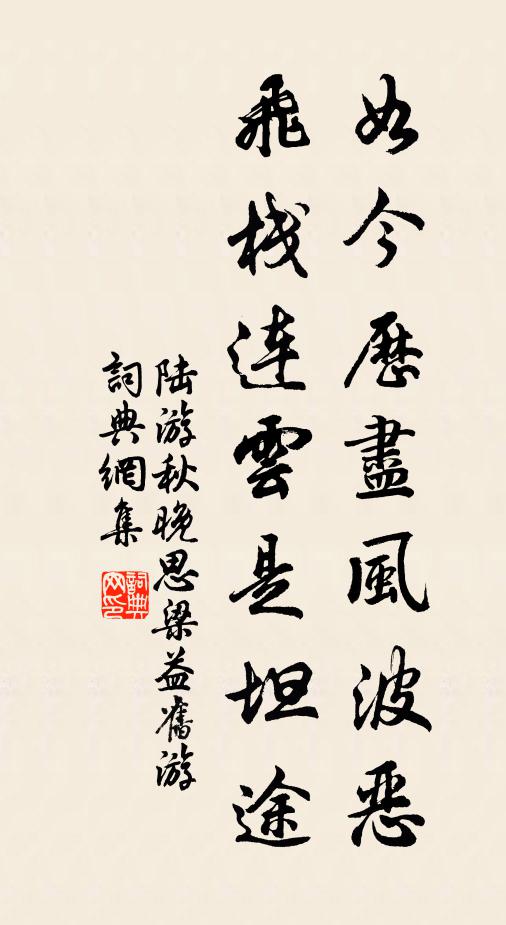 如今歷盡風波惡
飛棧連雲是坦途
陆游秋晚思梁益舊游
詞典網集
詞典网印